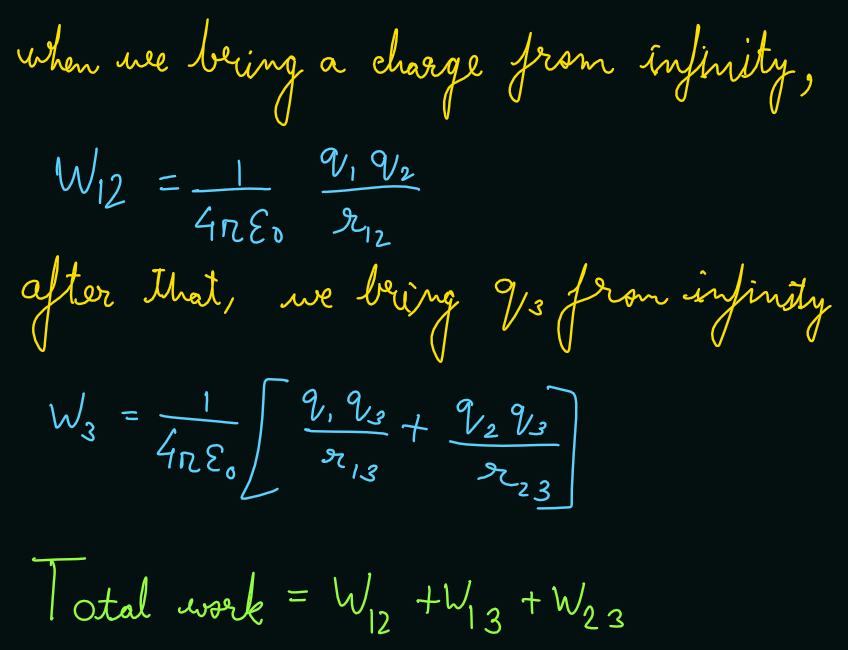 when we being a charge from infinity,
W₁₂ = 1/4πε₀ q₁q₂/r₁₂
after that, we being q₃ from infinity
W₃ = 1/4πε₀ [ q₁q₃/r₁₃ + q₂q₃/r₂₃ ]
Total work = W₁₂ + W₁₃ + W₂₃